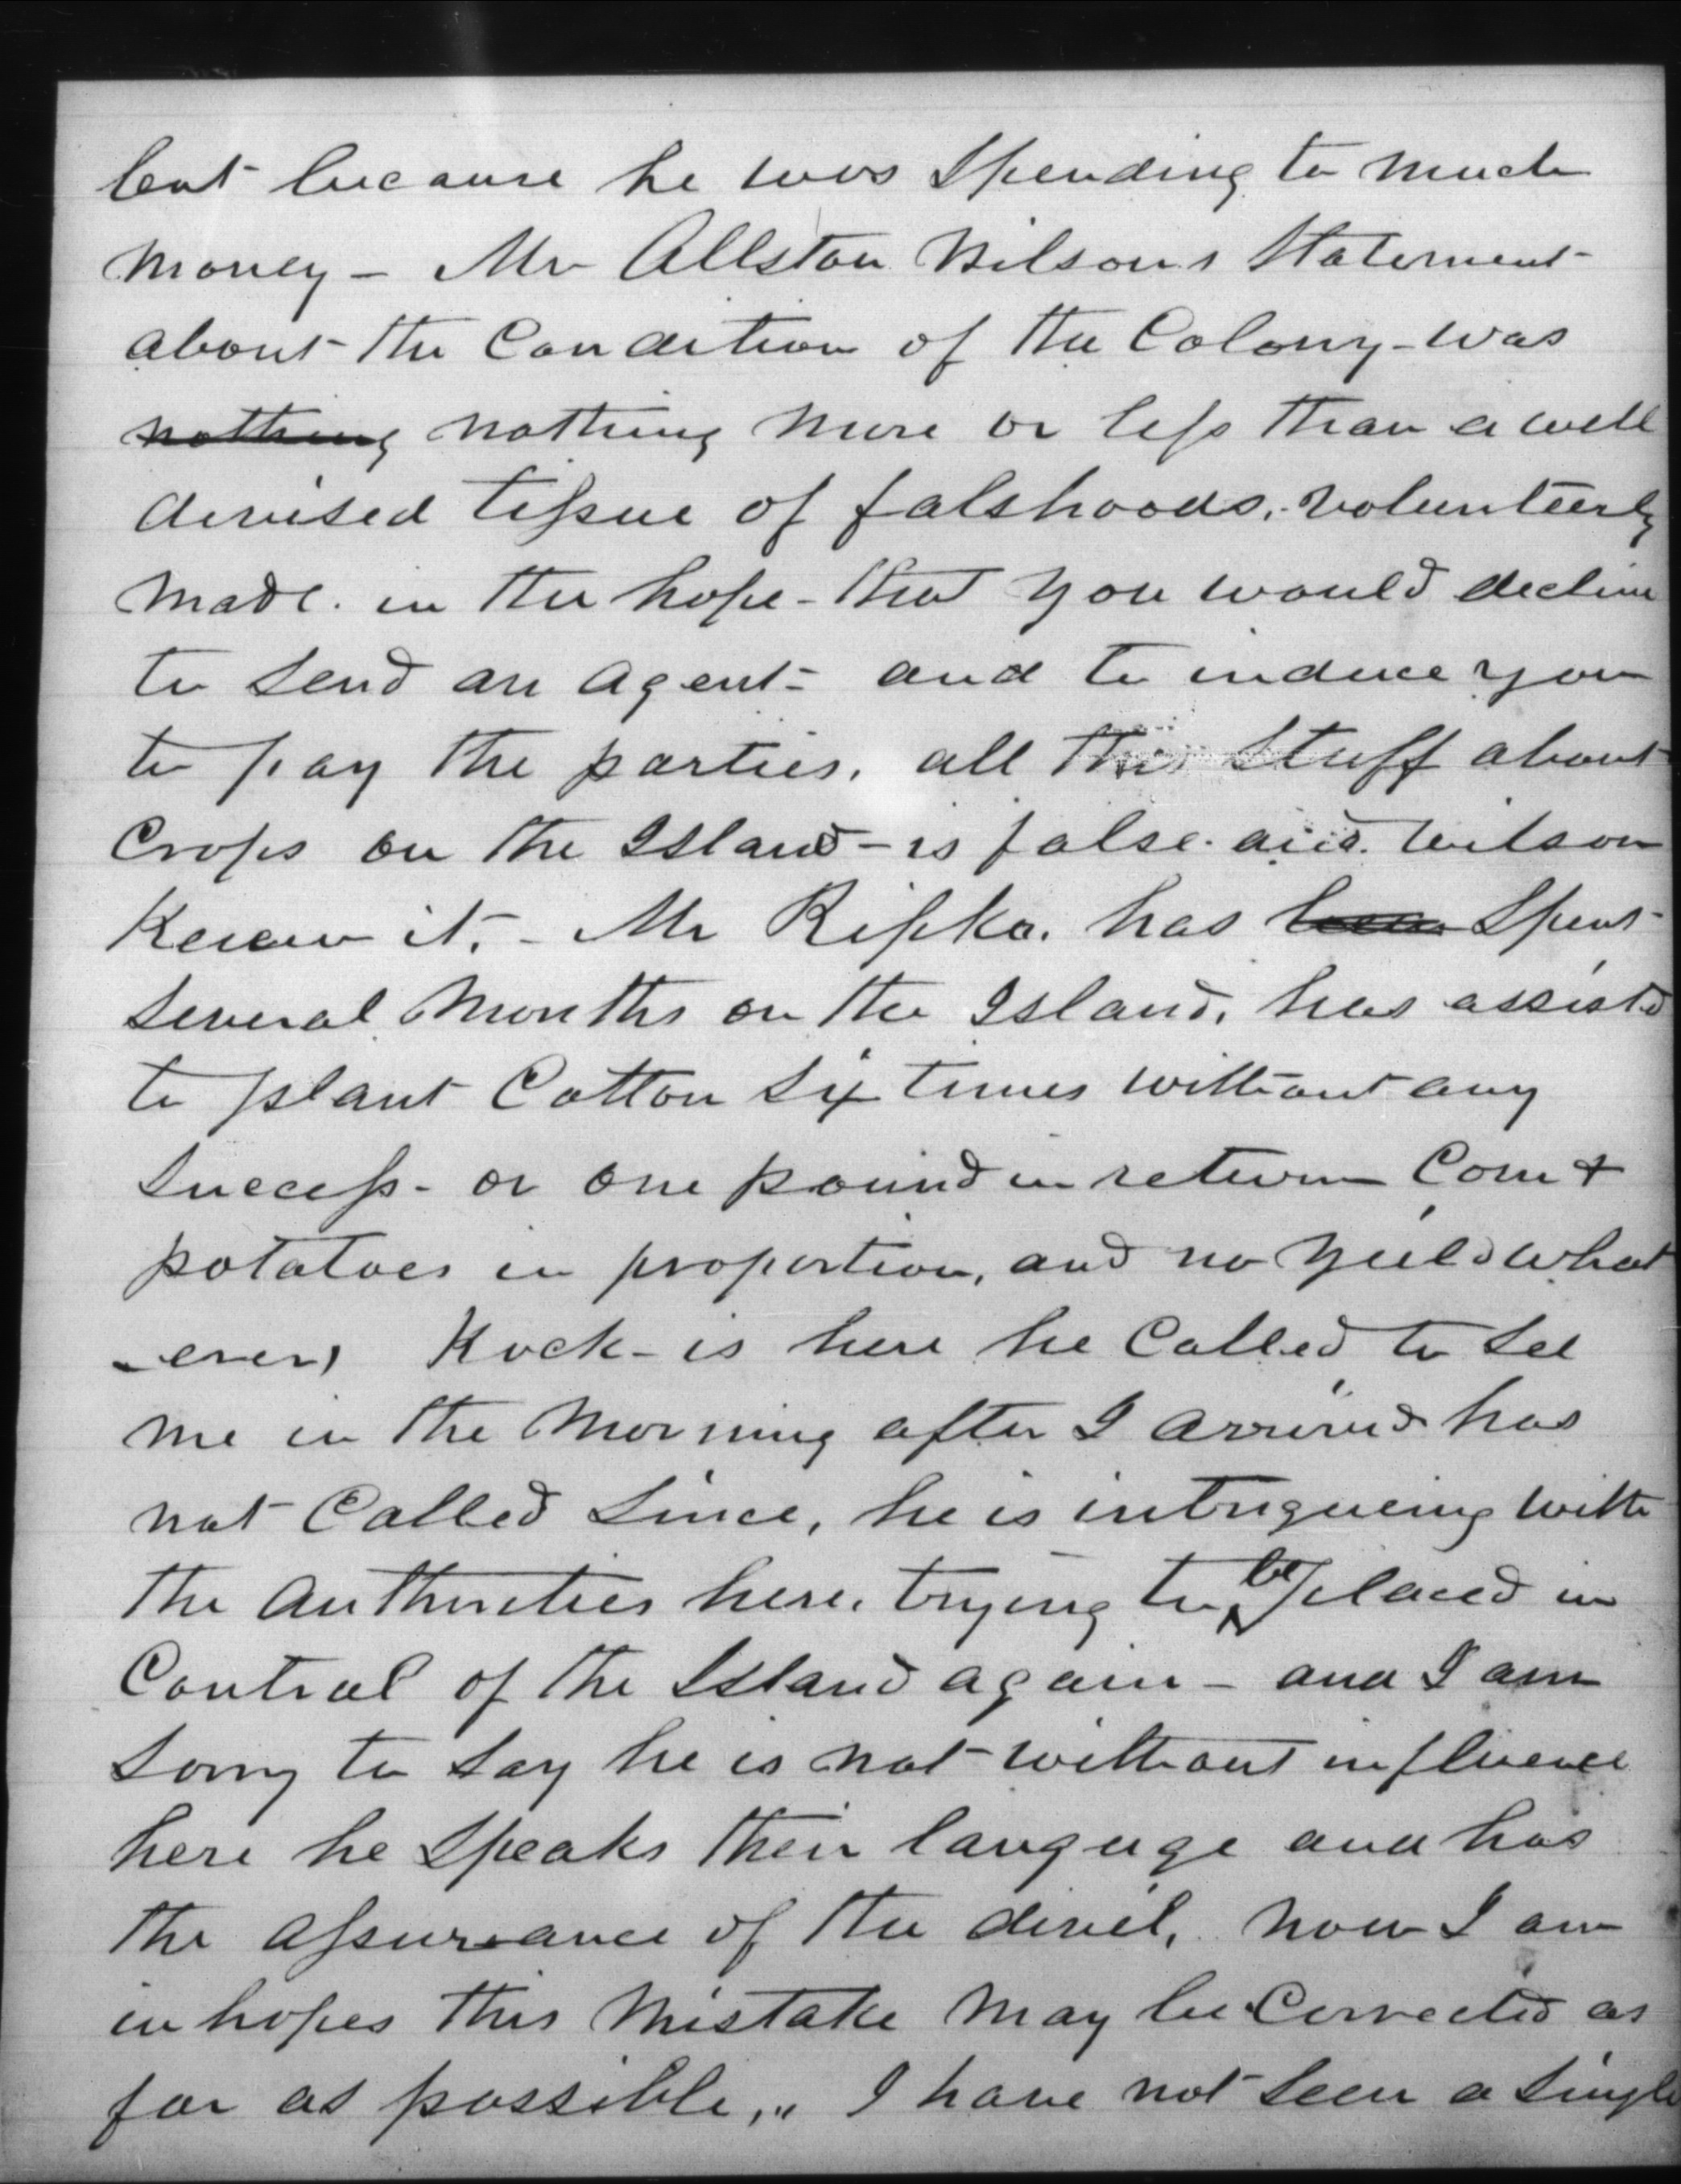 but because he was Spending to much
money - Mr Allston Wilsons Statement
about the Condition of the Colony - was
nothing nothing more or less than a well
devised tissue of falshoods, volunteerly
made. in the hope - that you would decline
to Send an agent - and to induce you
to pay the parties, all this Stuff about
Crops on the Island - is false. and. Wilson
Knew it. - Mr Ripka. has been Spent
Several Months on the Island, has assisted
to plant Cotton Six times without any
Success - or one pound in return Corn &
potatoes in proportion, and no Yield what
- ever, Kock - is here he Called to See
me in the Morning after I arrived has
not Called Since, he is intrigueing with
the Authorities here, trying to be placed in
Control of the Island again - and I am
Sorry to Say he is not without influence
here he Speaks their languge and has
the assurance of the devil, now I am
in hopes this Mistake May be Corrected as
far as possible,„ I have not Seen a Single